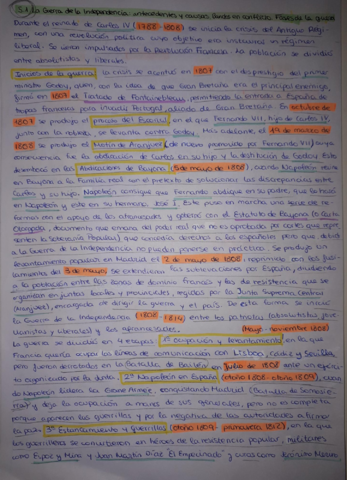 5.1) La Guerra de la Independencia: antecedentes y causas. Bandos en conflicto. Fases de la guerra
Durante el reinado de Carlos IV (1788-1808) se inicia la crisis del Antiguo Régi-
men, con una revolución política cuyo objetivo era instaurar un régimen
liberal. Se vieron impulsados por la Revolución Francesa. La población se dividió
entre absolutistas y liberales.
Inicios de la guerra: la crisis se acentuó en 1807 con el desprestigio del primer
ministro Godoy, quien, con la idea de que Gran Bretaña era el principal enemigo,
firmó en 1807 el Tratado de Fontainebleau, permitiendo la entrada a España de
tropas francesas para invadir Portugal, aliado de Gran Bretaña. En octubre de
1807 se produjo el proceso del Escorial, en el que Fernando VII, hijo de Carlos IV,
junto con la nobleza, se levanta contra Godoy. Más adelante, el 19 de marzo de
1808 se produjo el Motín de Aranjuez (de nuevo promovido por Fernando VII) cuya
consecuencia fue la abdicación de Carlos en su hijo y la destitución de Godoy. Esto
desembocó en las Abdicaciones de Bayona (5 de mayo de 1808), cuando Napoleón reunió
en Bayona a la Familia real con el pretexto de solucionar las discrepancias entre
Carlos y su hijo. Napoleón consigue que Fernando abdique en su padre, que lo hace
en Napoleón y este en su hermano José I. Este puso en marcha una serie de re-
formas con el apoyo de los afrancesados y gobernó con el Estatuto de Bayona (o Carta
Otorgada, documento que emana del poder real que no es aprobado por cortes que repre-
senten la soberanía popular) que concedía derechos a los españoles pero que debido
a la Guerra de la Independencia no pudo ponerse en práctica. Se produjo un
levantamiento popular en Madrid el 2 de mayo de 1808, reprimido con los fusi-
lamientos del 3 de mayo, se extendieron las sublevaciones por España, dividiendo
a la población entre las zonas de dominio francés y las de resistencia que se
organizan en juntas (locales y provinciales), regidas por la Junta Suprema Central
(Aranjuez), encargada de dirigir la guerra y el país. De esta forma se inició
la Guerra de la Independencia (1808-1814) entre los patriotas (absolutistas
y liberales) y los afrancesados.
(Mayo-noviembre 1808)
La guerra se dividió en 4 etapas: 1ª Ocupación y levantamiento, en la que
Francia quería ocupar las líneas de comunicación con Lisboa, Cádiz y Sevilla
pero fueron derrotados en la Batalla de Bailén en julio de 1808 ante un ejérci-
to organizado por la Junta. 2ª Napoleón en España (otoño 1808-otoño 1809), cuando
Napoleón lidera la Grande Armée conquistando Madrid (Batalla de Somosie-
rra) y deja la ocupación a manos de sus generales, pero no es completa
porque aparecen las guerrillas y por la negativa de las autoridades a firmar
la paz. 3ª Estancamiento y guerrillas (otoño 1809-primavera 1812), en la que
los guerrilleros se convirtieron en héroes de la resistencia popular, militares
como Espoz y Mina y Juan Martín Díaz "El Empecinado" y curas como Jerónimo Merino.